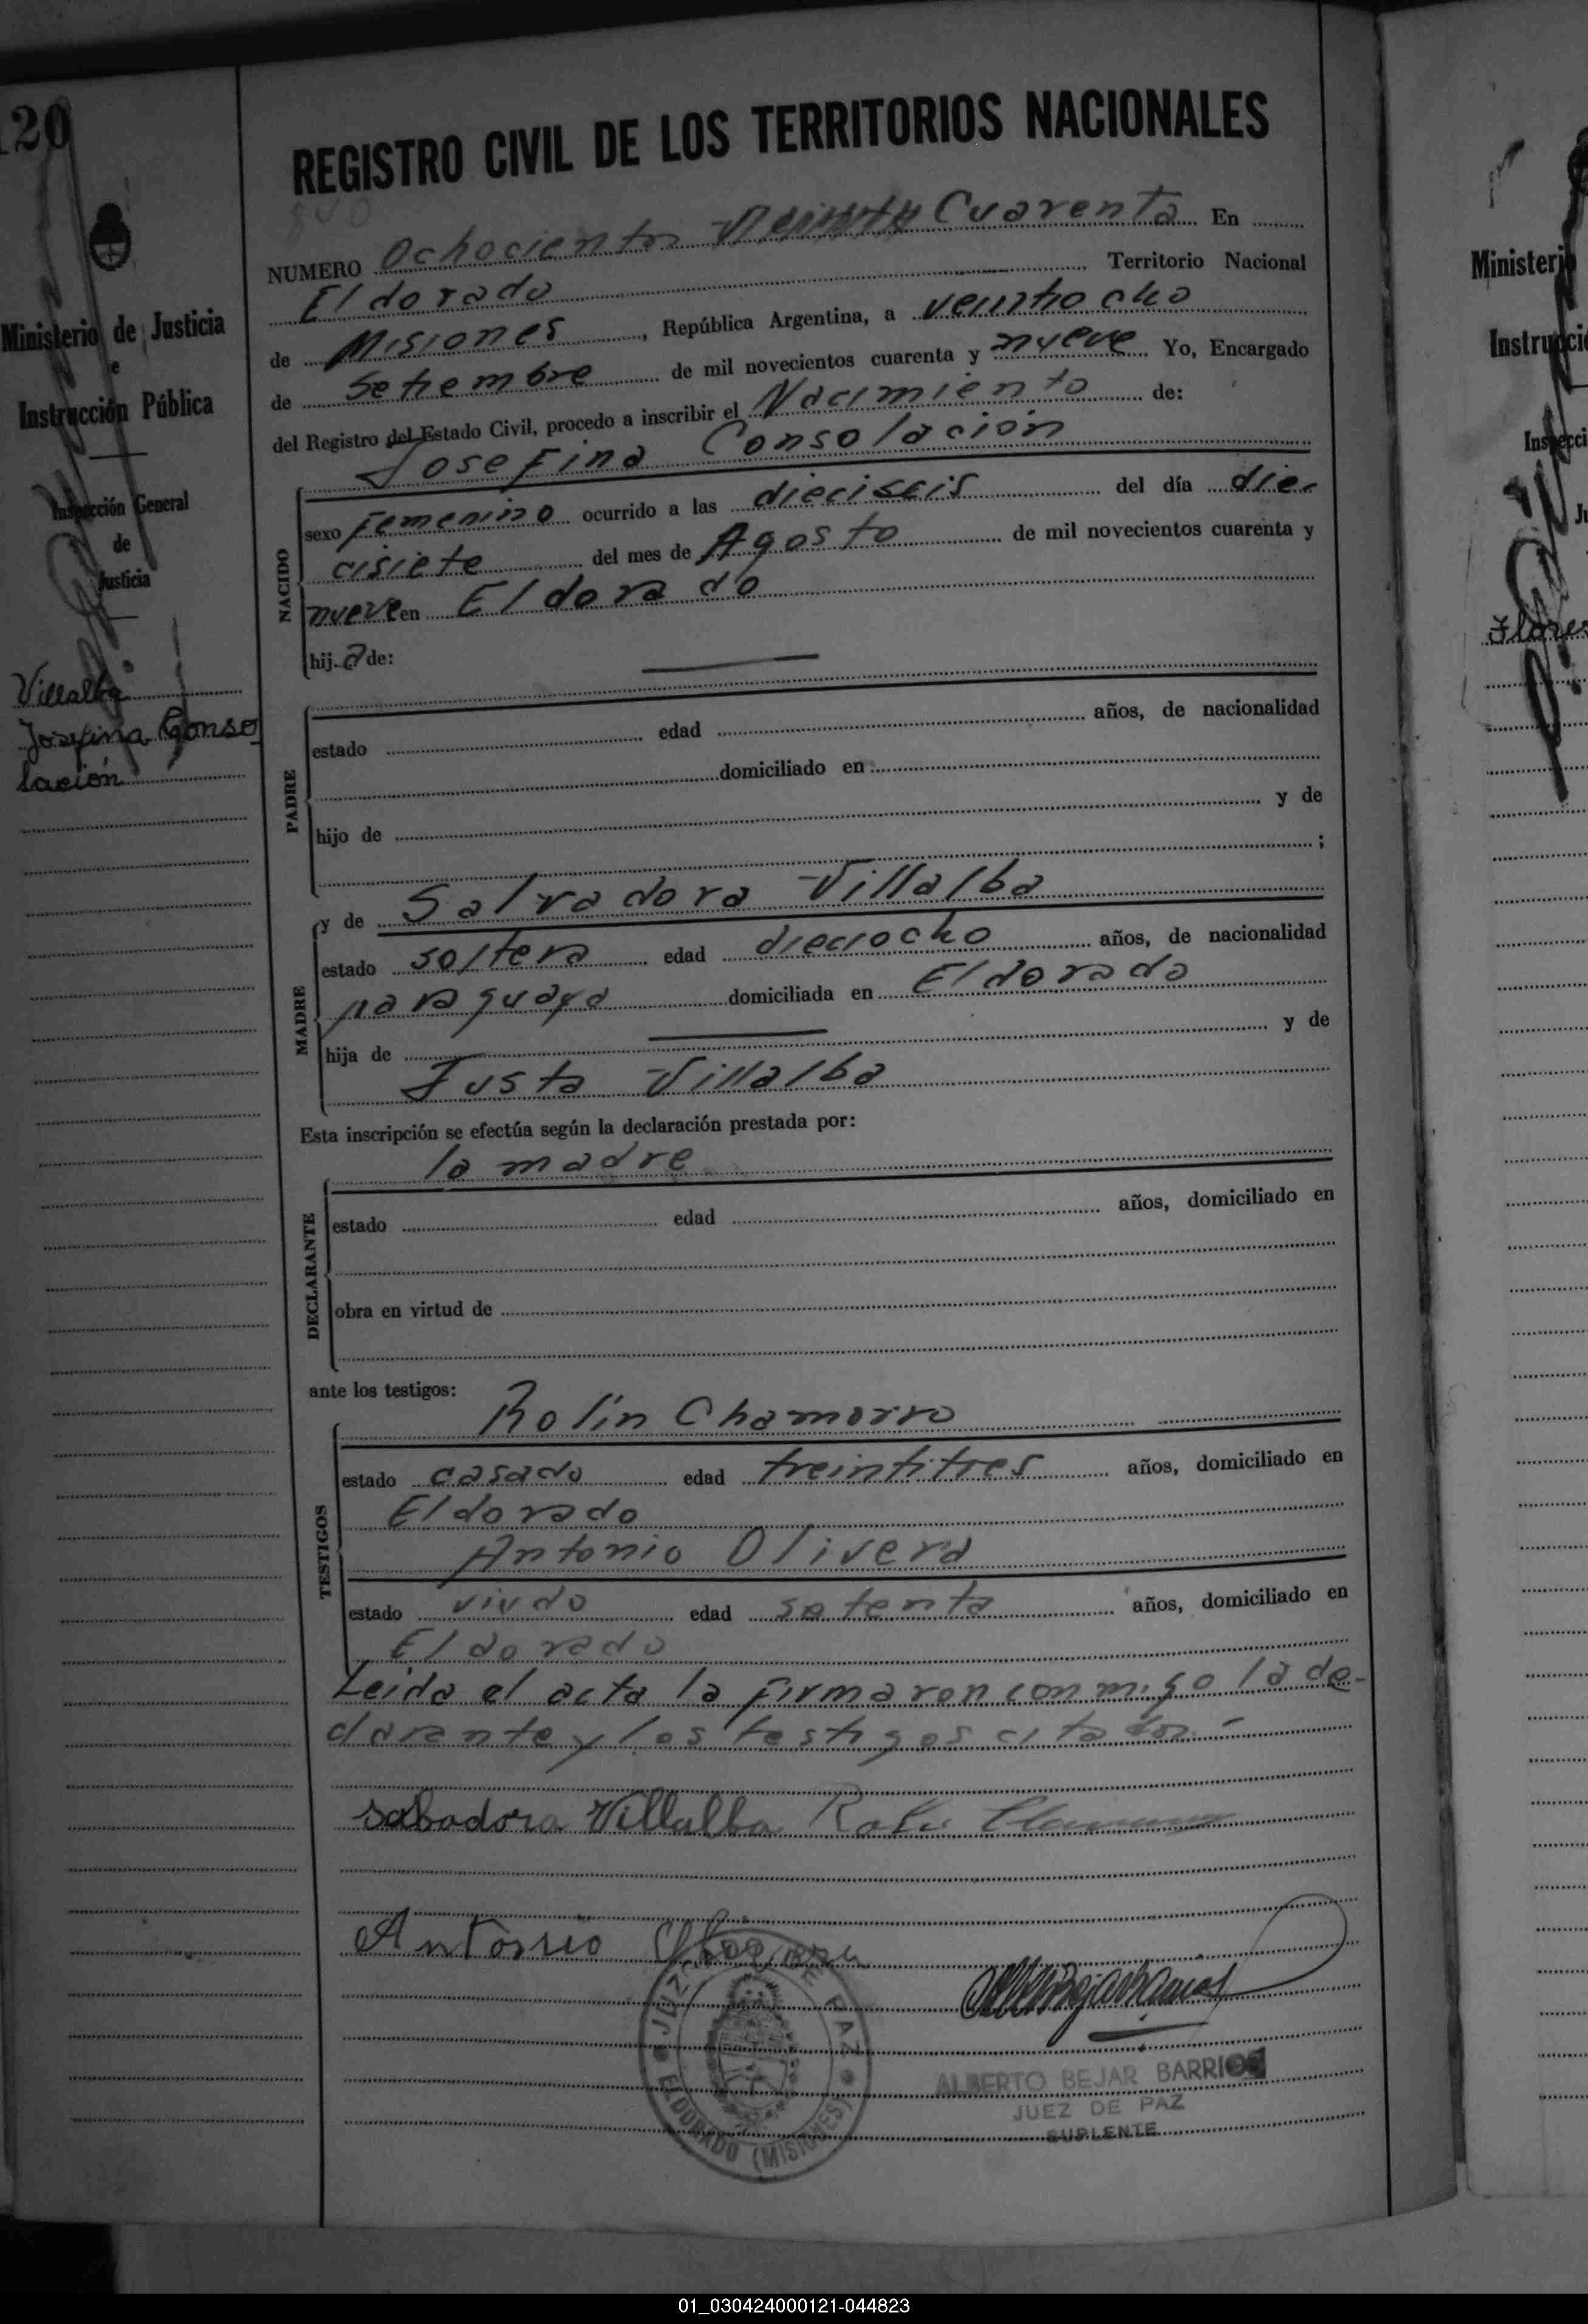 120
Ministerio de Justicia
e
Instrucción Pública
Inspección General
de
Justicia
Villalba
Josefina Conso
lación
REGISTRO CIVIL DE LOS TERRITORIOS NACIONALES
840
NUMERO Ochocientos Cuarenta En
Eldorado Territorio Nacional
de Misiones, República Argentina, a veintiocho
de Setiembre de mil novecientos cuarenta y nueve Yo, Encargado
del Registro del Estado Civil, procedo a inscribir el Nacimiento de:
Josefina Consolación
NACIDO
sexo Femenino ocurrido a las dieciseis del día diec
cisiete del mes de Agosto de mil novecientos cuarenta y
nueve en Eldorado
hija de:
PADRE
estado edad años, de nacionalidad
domiciliado en
hijo de y de
;
MADRE
y de Salvadora Villalba
estado soltera edad dieciocho años, de nacionalidad
paraguaya domiciliada en Eldorado
hija de y de
Justa Villalba
Esta inscripción se efectúa según la declaración prestada por:
la madre
DECLARANTE
estado edad años, domiciliado en
obra en virtud de
ante los testigos:
TESTIGOS
Rolín Chamorro
estado casado edad treintitres años, domiciliado en
Eldorado
Antonio Olivera
estado viudo edad setenta años, domiciliado en
Eldorado
Leida el acta la firmaron conmigo la de-
clarante y los testigos citados.-
Salvadora Villalba Rolin Chamorro
Antonio Olivera
JUZGADO DE PAZ
ELDORADO (MISIONES)
ALBERTO BEJAR BARRIOS
JUEZ DE PAZ
SUPLENTE
Ministerio
Instrucci
Inspecci
Ju
Flores
01_030424000121-044823